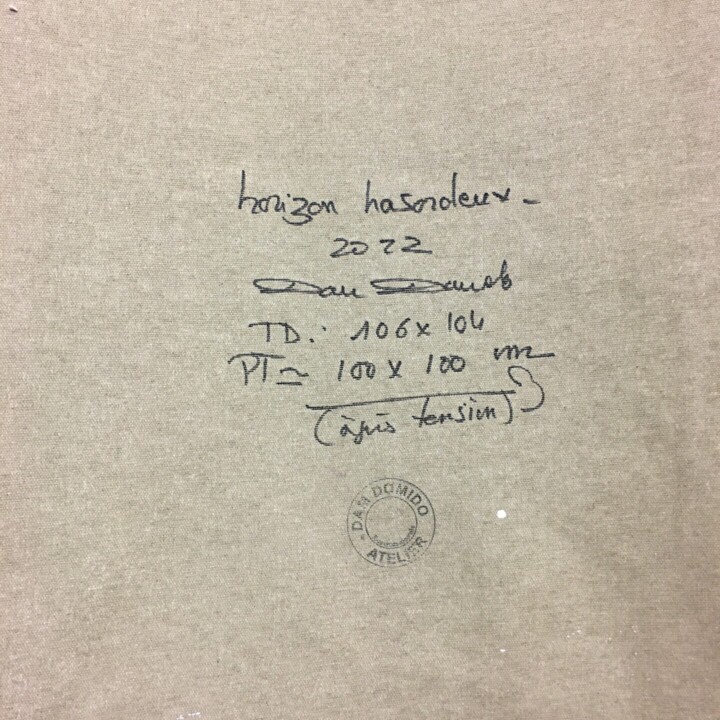 horizon hasardeux -
2022
Dan
TD.: 106 x 104
PT ≃ 100 x 100
(après tension)
DAN DOMIDO
ATELIER